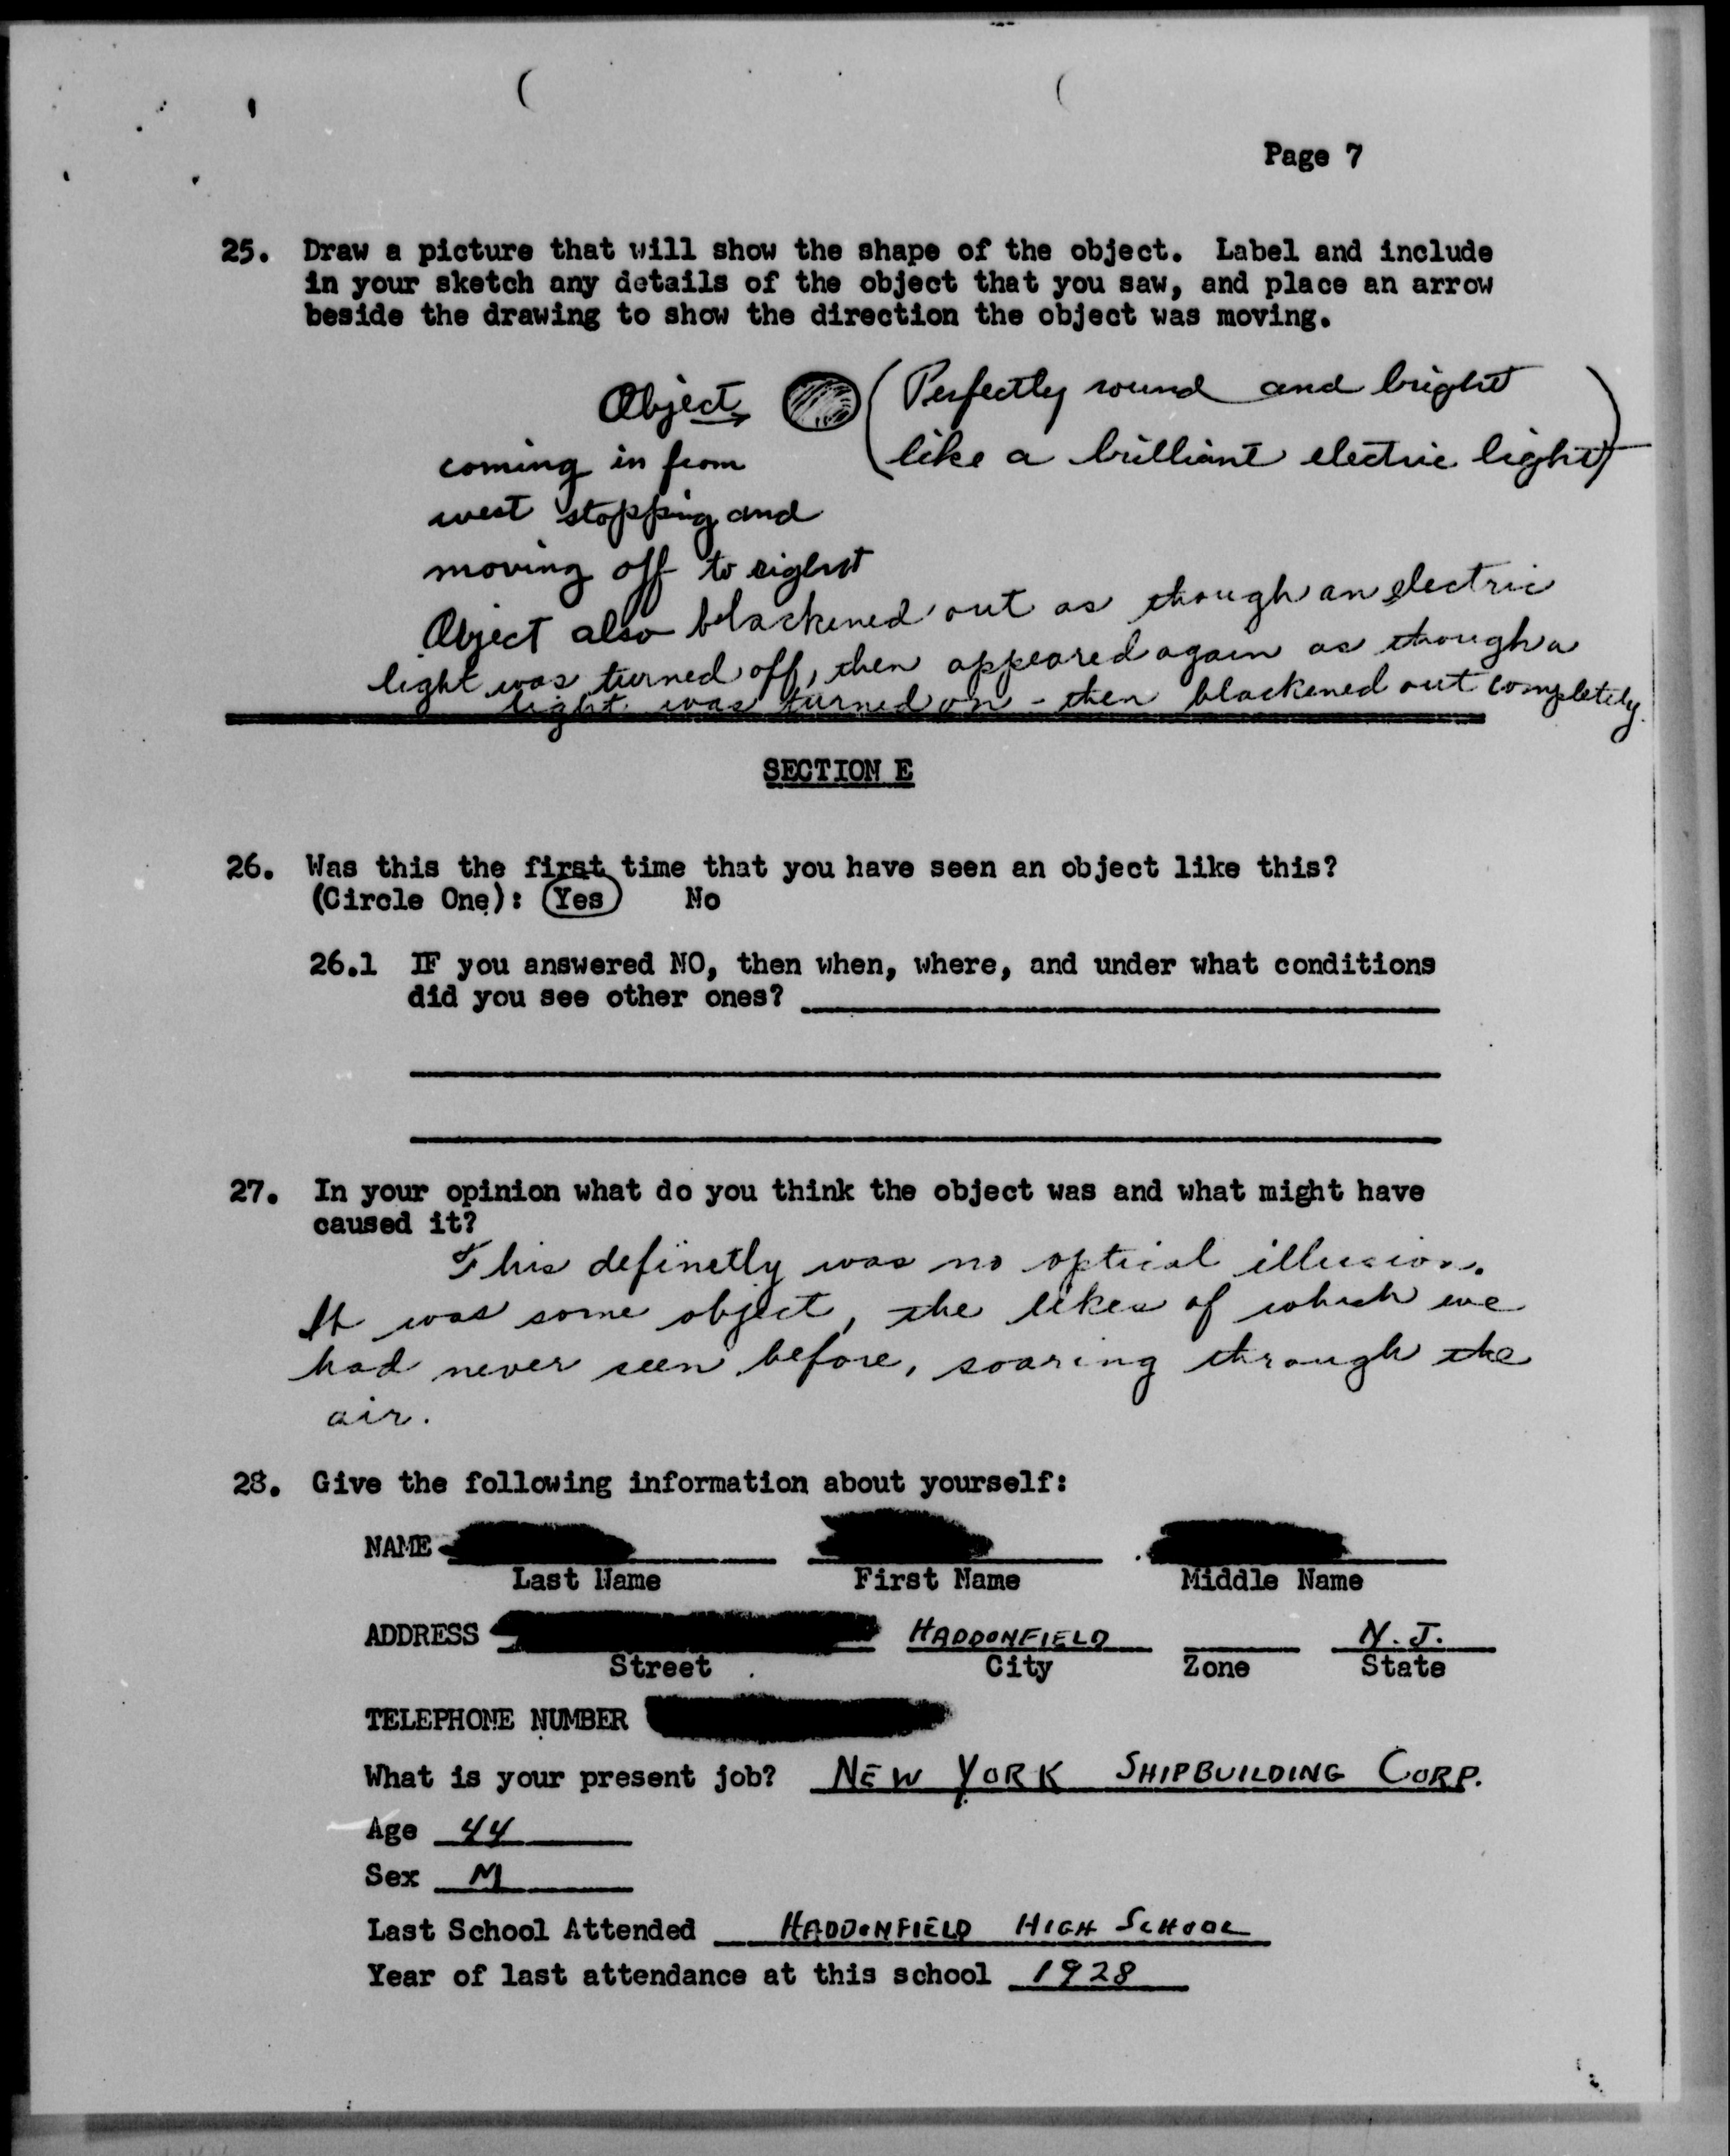 Page 7
25. Draw a picture that will show the shape of the object. Label and include
in your sketch any details of the object that you saw, and place an arrow
beside the drawing to show the direction the object was moving.
Object (Perfectly round and bright
like a brilliant electric light)
coming in from
west stopping and
moving off to right
Object also blackened out as though an electric
light was turned off, then appeared again as though a
light was turned on - then blackened out completely.
SECTION E
26. Was this the first time that you have seen an object like this?
(Circle One): Yes No
26.1 IF you answered NO, then when, where, and under what conditions
did you see other ones?
27. In your opinion what do you think the object was and what might have
caused it?
This definetly was no optical illusion.
It was some object, the likes of which we
had never seen before, soaring through the
air.
28. Give the following information about yourself:
NAME
Last Name First Name Middle Name
ADDRESS HADDONFIELD N. J.
Street City Zone State
TELEPHONE NUMBER
What is your present job? NEW YORK SHIPBUILDING CORP.
Age 44
Sex M
Last School Attended HADDONFIELD HIGH SCHOOL
Year of last attendance at this school 1928